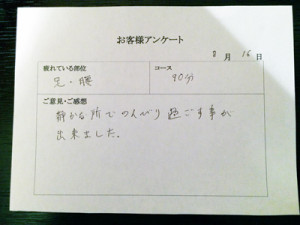 お客様アンケート
8月16日
疲れている部位
コース
足・腰
90分
ご意見・ご感想
静かな所でのんびり過ごす事が
出来ました。